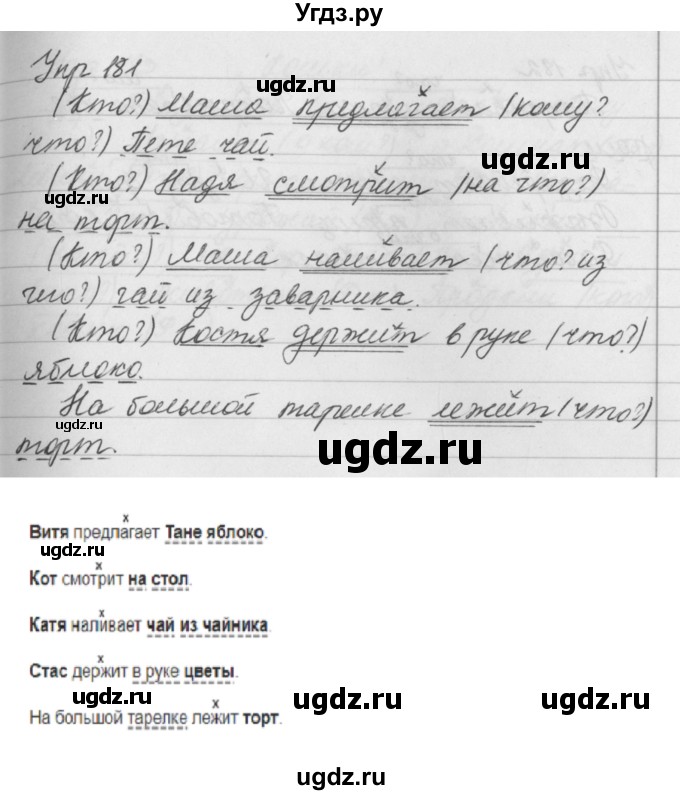 Угдз.ру
Упр 181
(Кто?) Маша предлагает (кому?
что?) Пете чай.
(Кто?) Надя смотрит (на что?)
на торт.
(Кто?) Маша наливает (что? из
чего?) чай из заварника.
(Кто?) Костя держит в руке (что?)
яблоко.
На большой тарелке лежит (что?)
торт.
Витя предлагает Тане яблоко.
Кот смотрит на стол.
Катя наливает чай из чайника.
Стас держит в руке цветы.
На большой тарелке лежит торт.
ugdz.ru
ugdz.ru
ugdz.ru
ugdz.ru
ugdz.ru
ugdz.ru
ugdz.ru
ugdz.ru
ugdz.ru
ugdz.ru
ugdz.ru
ugdz.ru